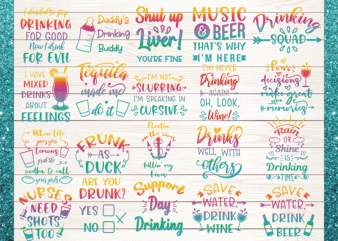 DRINKING
FOR GOOD
Now I drink
FOR EVIL
Daddy's
Drinking
Buddy
Shut up
Liver!
YOU'RE FINE
MUSIC
& BEER
THAT'S WHY
I'M HERE
Drinking
SQUAD
I HAVE
MIXED
DRINKS
ABOUT
FEELINGS
Tequila
made me
do it
I'M NOT
SLURRING,
I'M SPEAKING IN
CURSIVE
I'M NEVER
Drinking
AGAIN!
OH, LOOK,
Wine!
Poor
decisions
make great
memories
When life
gives you
lemons
vodka & call
FRUNK
AS
DUCK
ARE YOU
DRUNK?
YES
NO
Floatin
down the river
killin my
liver
Drinks
WELL WITH
others
Rain
OR
Shine
IS
Drinking
Time
NURSES
NEED
SHOTS
TOO
Support
Day
Drinking
SAVE
WATER,
DRINK
WINE
SAVE
WATER,
DRINK
BEER